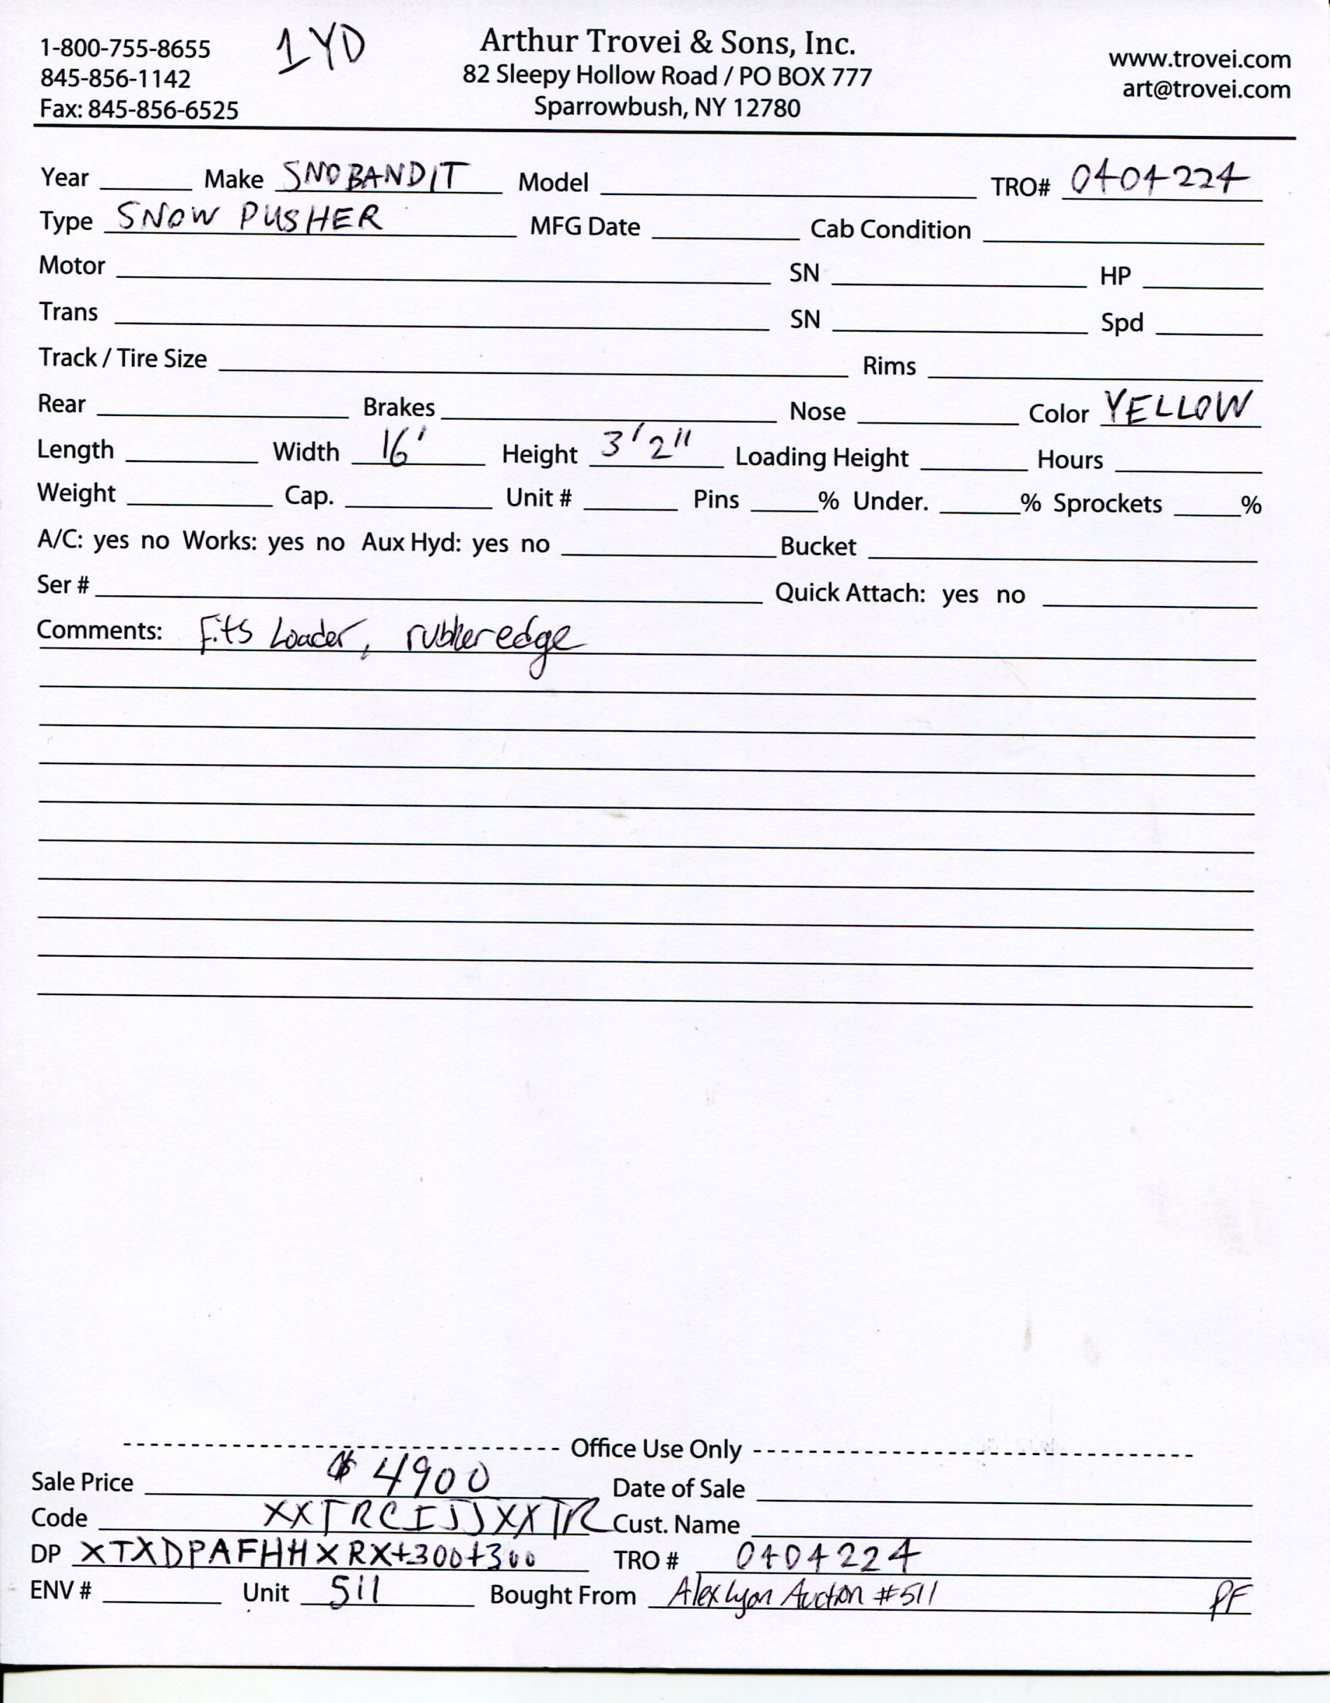 1-800-755-8655 1YD Arthur Trovei & Sons, Inc. www.trovei.com
845-856-1142 82 Sleepy Hollow Road / PO BOX 777 art@trovei.com
Fax: 845-856-6525 Sparrowbush, NY 12780
Year Make SNOBANDIT Model TRO# 0404224
Type SNOW PUSHER MFG Date Cab Condition
Motor SN HP
Trans SN Spd
Track / Tire Size Rims
Rear Brakes Nose Color YELLOW
Length Width 16' Height 3'2" Loading Height Hours
Weight Cap. Unit # Pins % Under. % Sprockets %
A/C: yes no Works: yes no Aux Hyd: yes no Bucket
Ser # Quick Attach: yes no
Comments: Fits Loader, rubber edge
Office Use Only
Sale Price $4900 Date of Sale
Code XXTRCIJJXXTR Cust. Name
DP XTXDPAFHHXRX+300+300 TRO # 0404224
ENV # Unit 511 Bought From Alex Lyon Auction #511 PF